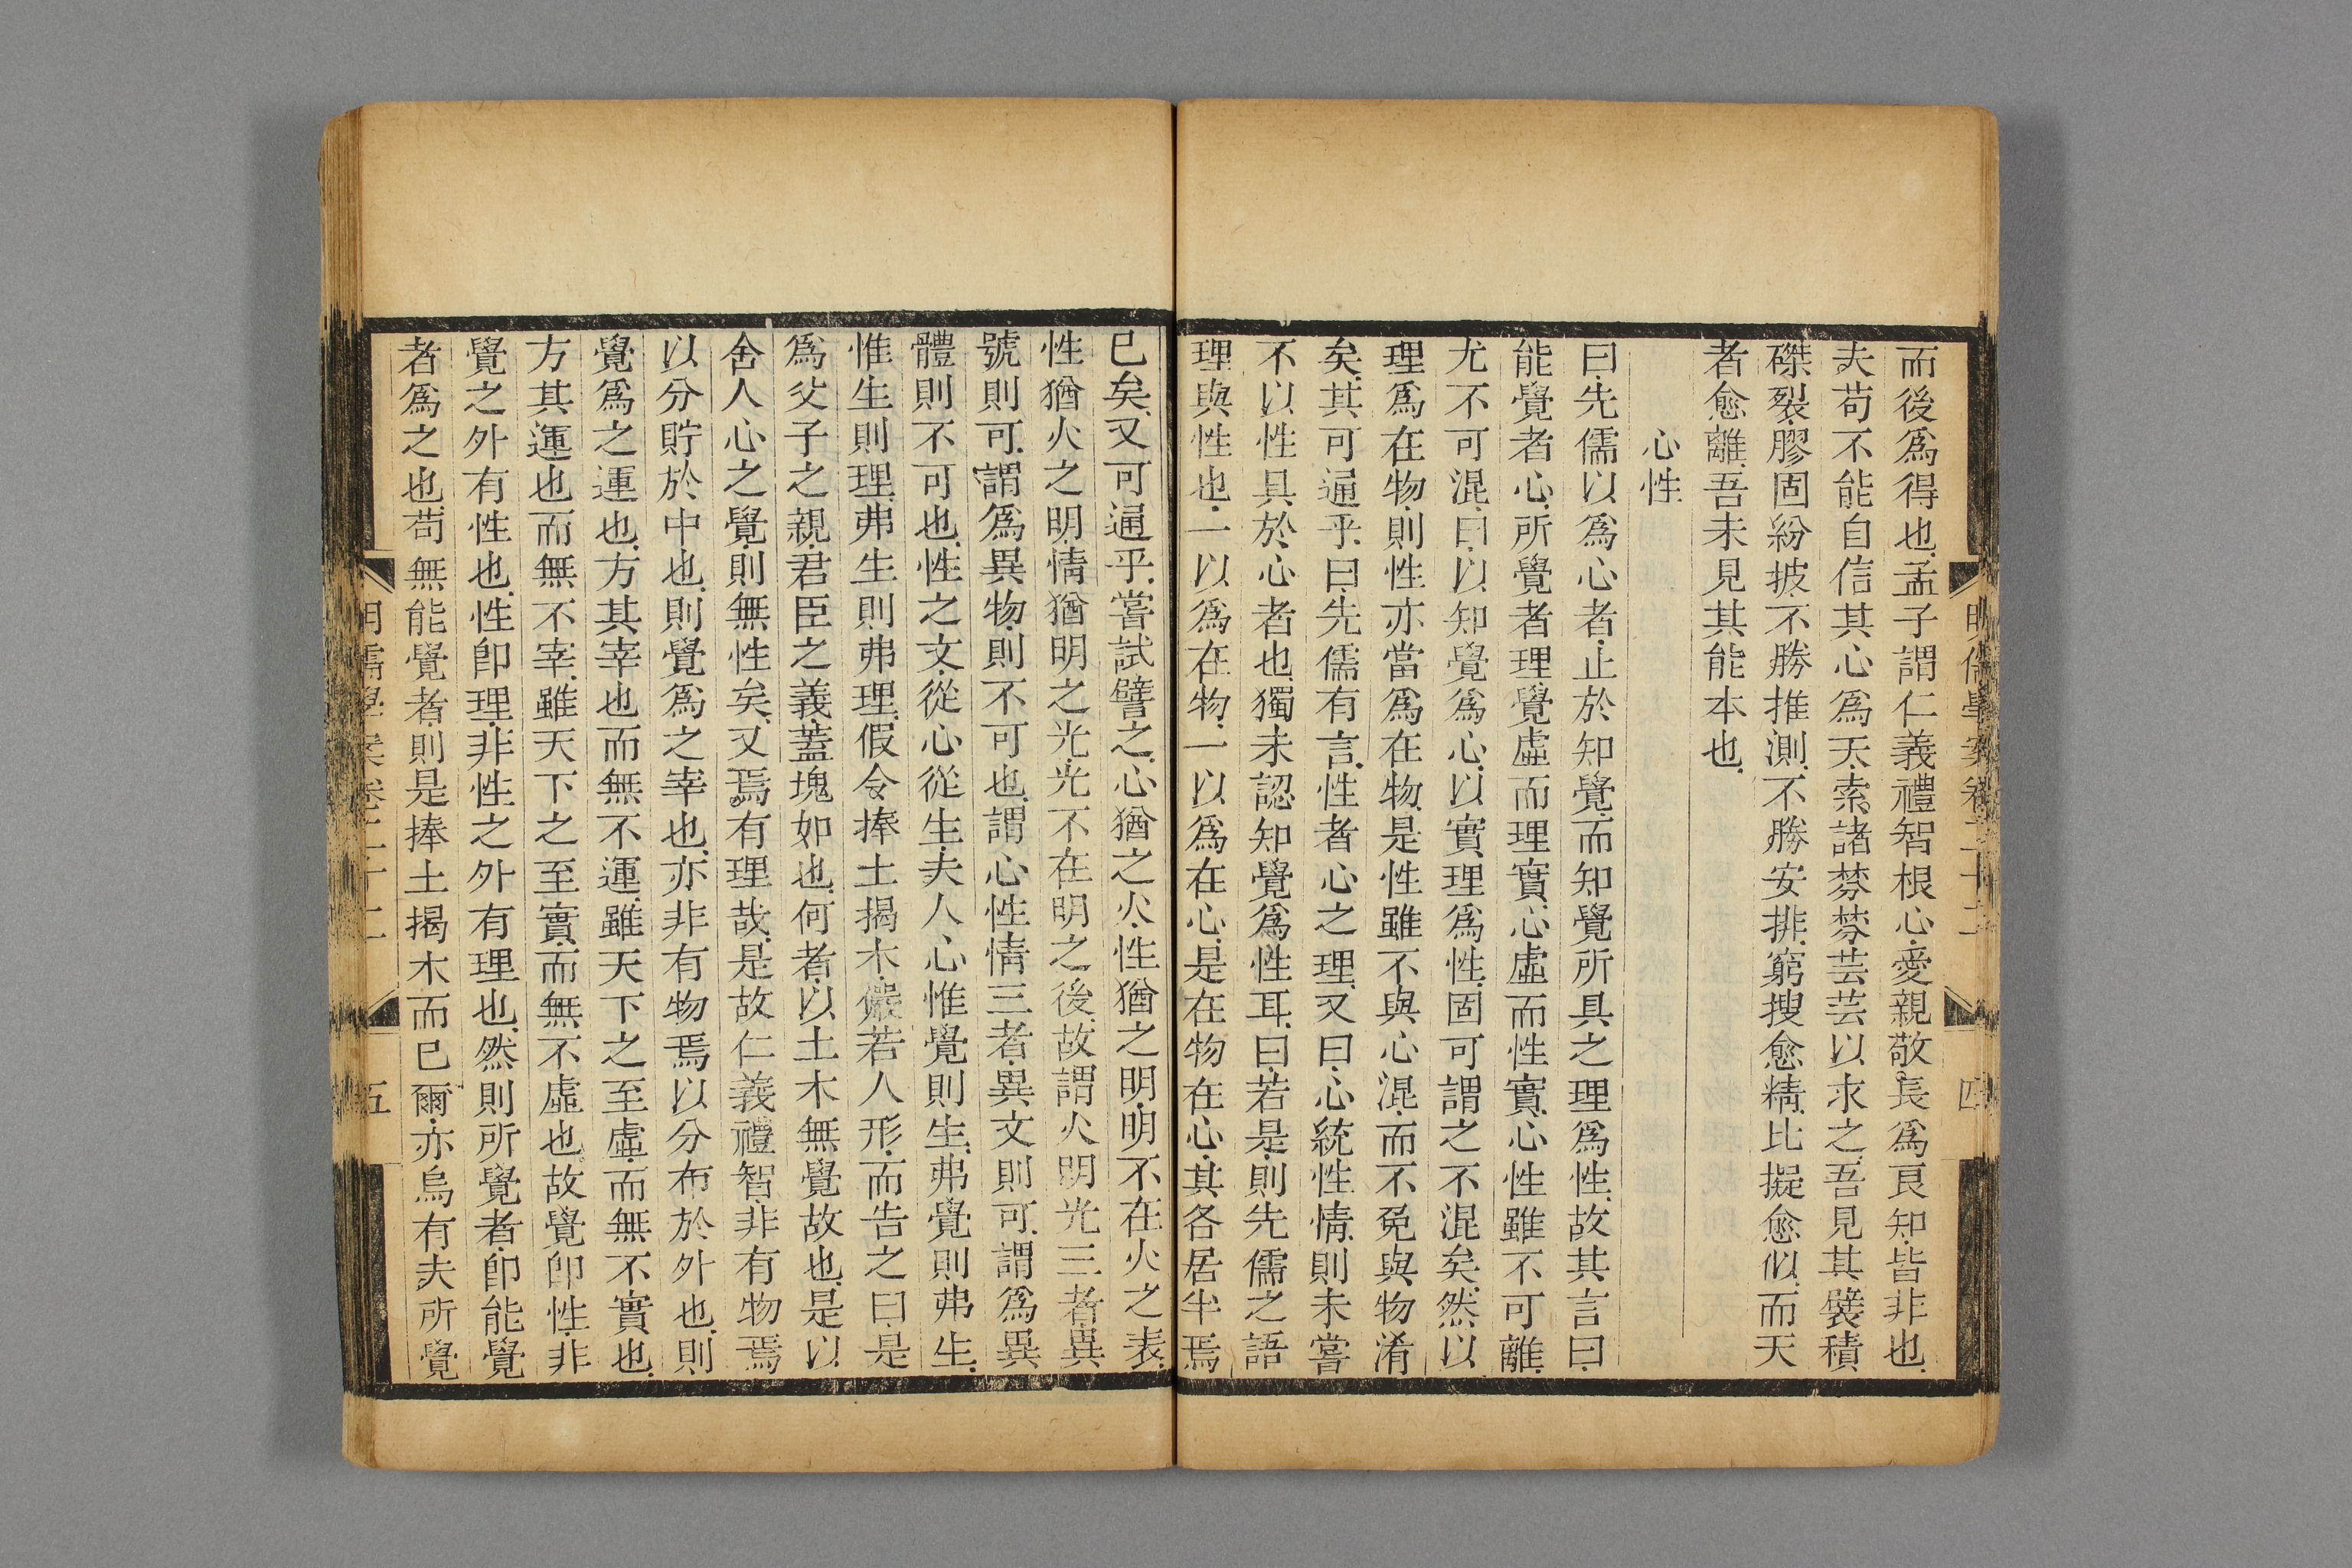 而後爲得也孟子謂仁義禮智根心愛親敬長爲良知皆非也
夫苟不能自信其心爲天索諸棼棼芸芸以求之吾見其襞積
磔裂膠固紛披不勝推測不勝安排窮搜愈精比擬愈似而天
者愈離吾未見其能本也
心性
曰先儒以爲心者止於知覺而知覺所具之理爲性故其言曰
能覺者心所覺者理覺虛而理實心虛而性實心性雖不可離
尤不可混曰以知覺爲心以實理爲性固可謂之不混矣然以
理爲在物則性亦當爲在物是性雖不與心混而不免與物淆
矣其可通乎曰先儒有言性者心之理又曰心統性情則未嘗
不以性具於心者也獨未認知覺爲性耳曰若是則先儒之語
理與性也一以爲在物一以爲在心是在物在心其各居半焉
已矣又可通乎嘗試譬之心猶之火性猶之明明不在火之表
性猶火之明情猶明之光光不在明之後故謂火明光三者異
號則可謂爲異物則不可也謂心性情三者異文則可謂爲異
體則不可也性之文從心從生夫人心惟覺則生弗覺則弗生
惟生則理弗生則弗理假令捧土揭木儼若人形而告之曰是
爲父子之親君臣之義蓋塊如也何者以土木無覺故也是以
舍人心之覺則無性矣又焉有理哉是故仁義禮智非有物焉
以分貯於中也則覺爲之宰也亦非有物焉以分布於外也則
覺爲之運也方其宰也而無不運雖天下之至虛而無不實也
方其運也而無不宰雖天下之至實而無不虛也故覺卽性非
覺之外有性也性卽理非性之外有理也然則所覺者卽能覺
者爲之也苟無能覺者則是捧土揭木而已爾亦烏有夫所覺
明儒學案卷二十二
四
明儒學案卷二十二
五